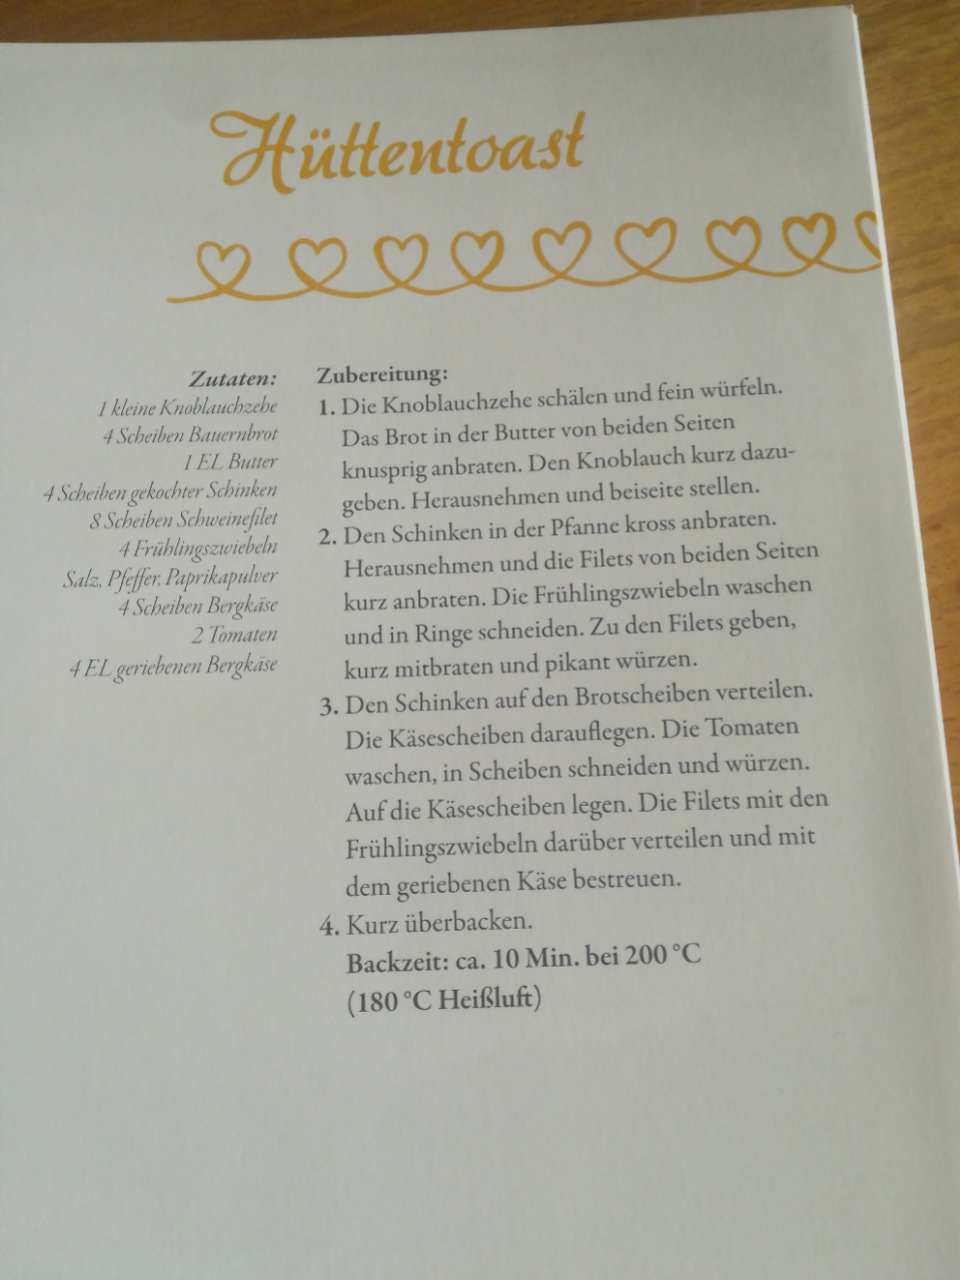 Hüttentoast
Zutaten:
1 kleine Knoblauchzehe
4 Scheiben Bauernbrot
1 EL Butter
4 Scheiben gekochter Schinken
8 Scheiben Schweinefilet
4 Frühlingszwiebeln
Salz, Pfeffer, Paprikapulver
4 Scheiben Bergkäse
2 Tomaten
4 EL geriebenen Bergkäse
Zubereitung:
1. Die Knoblauchzehe schälen und fein würfeln.
Das Brot in der Butter von beiden Seiten
knusprig anbraten. Den Knoblauch kurz dazu-
geben. Herausnehmen und beiseite stellen.
2. Den Schinken in der Pfanne kross anbraten.
Herausnehmen und die Filets von beiden Seiten
kurz anbraten. Die Frühlingszwiebeln waschen
und in Ringe schneiden. Zu den Filets geben,
kurz mitbraten und pikant würzen.
3. Den Schinken auf den Brotscheiben verteilen.
Die Käsescheiben darauflegen. Die Tomaten
waschen, in Scheiben schneiden und würzen.
Auf die Käsescheiben legen. Die Filets mit den
Frühlingszwiebeln darüber verteilen und mit
dem geriebenen Käse bestreuen.
4. Kurz überbacken.
Backzeit: ca. 10 Min. bei 200 °C
(180 °C Heißluft)